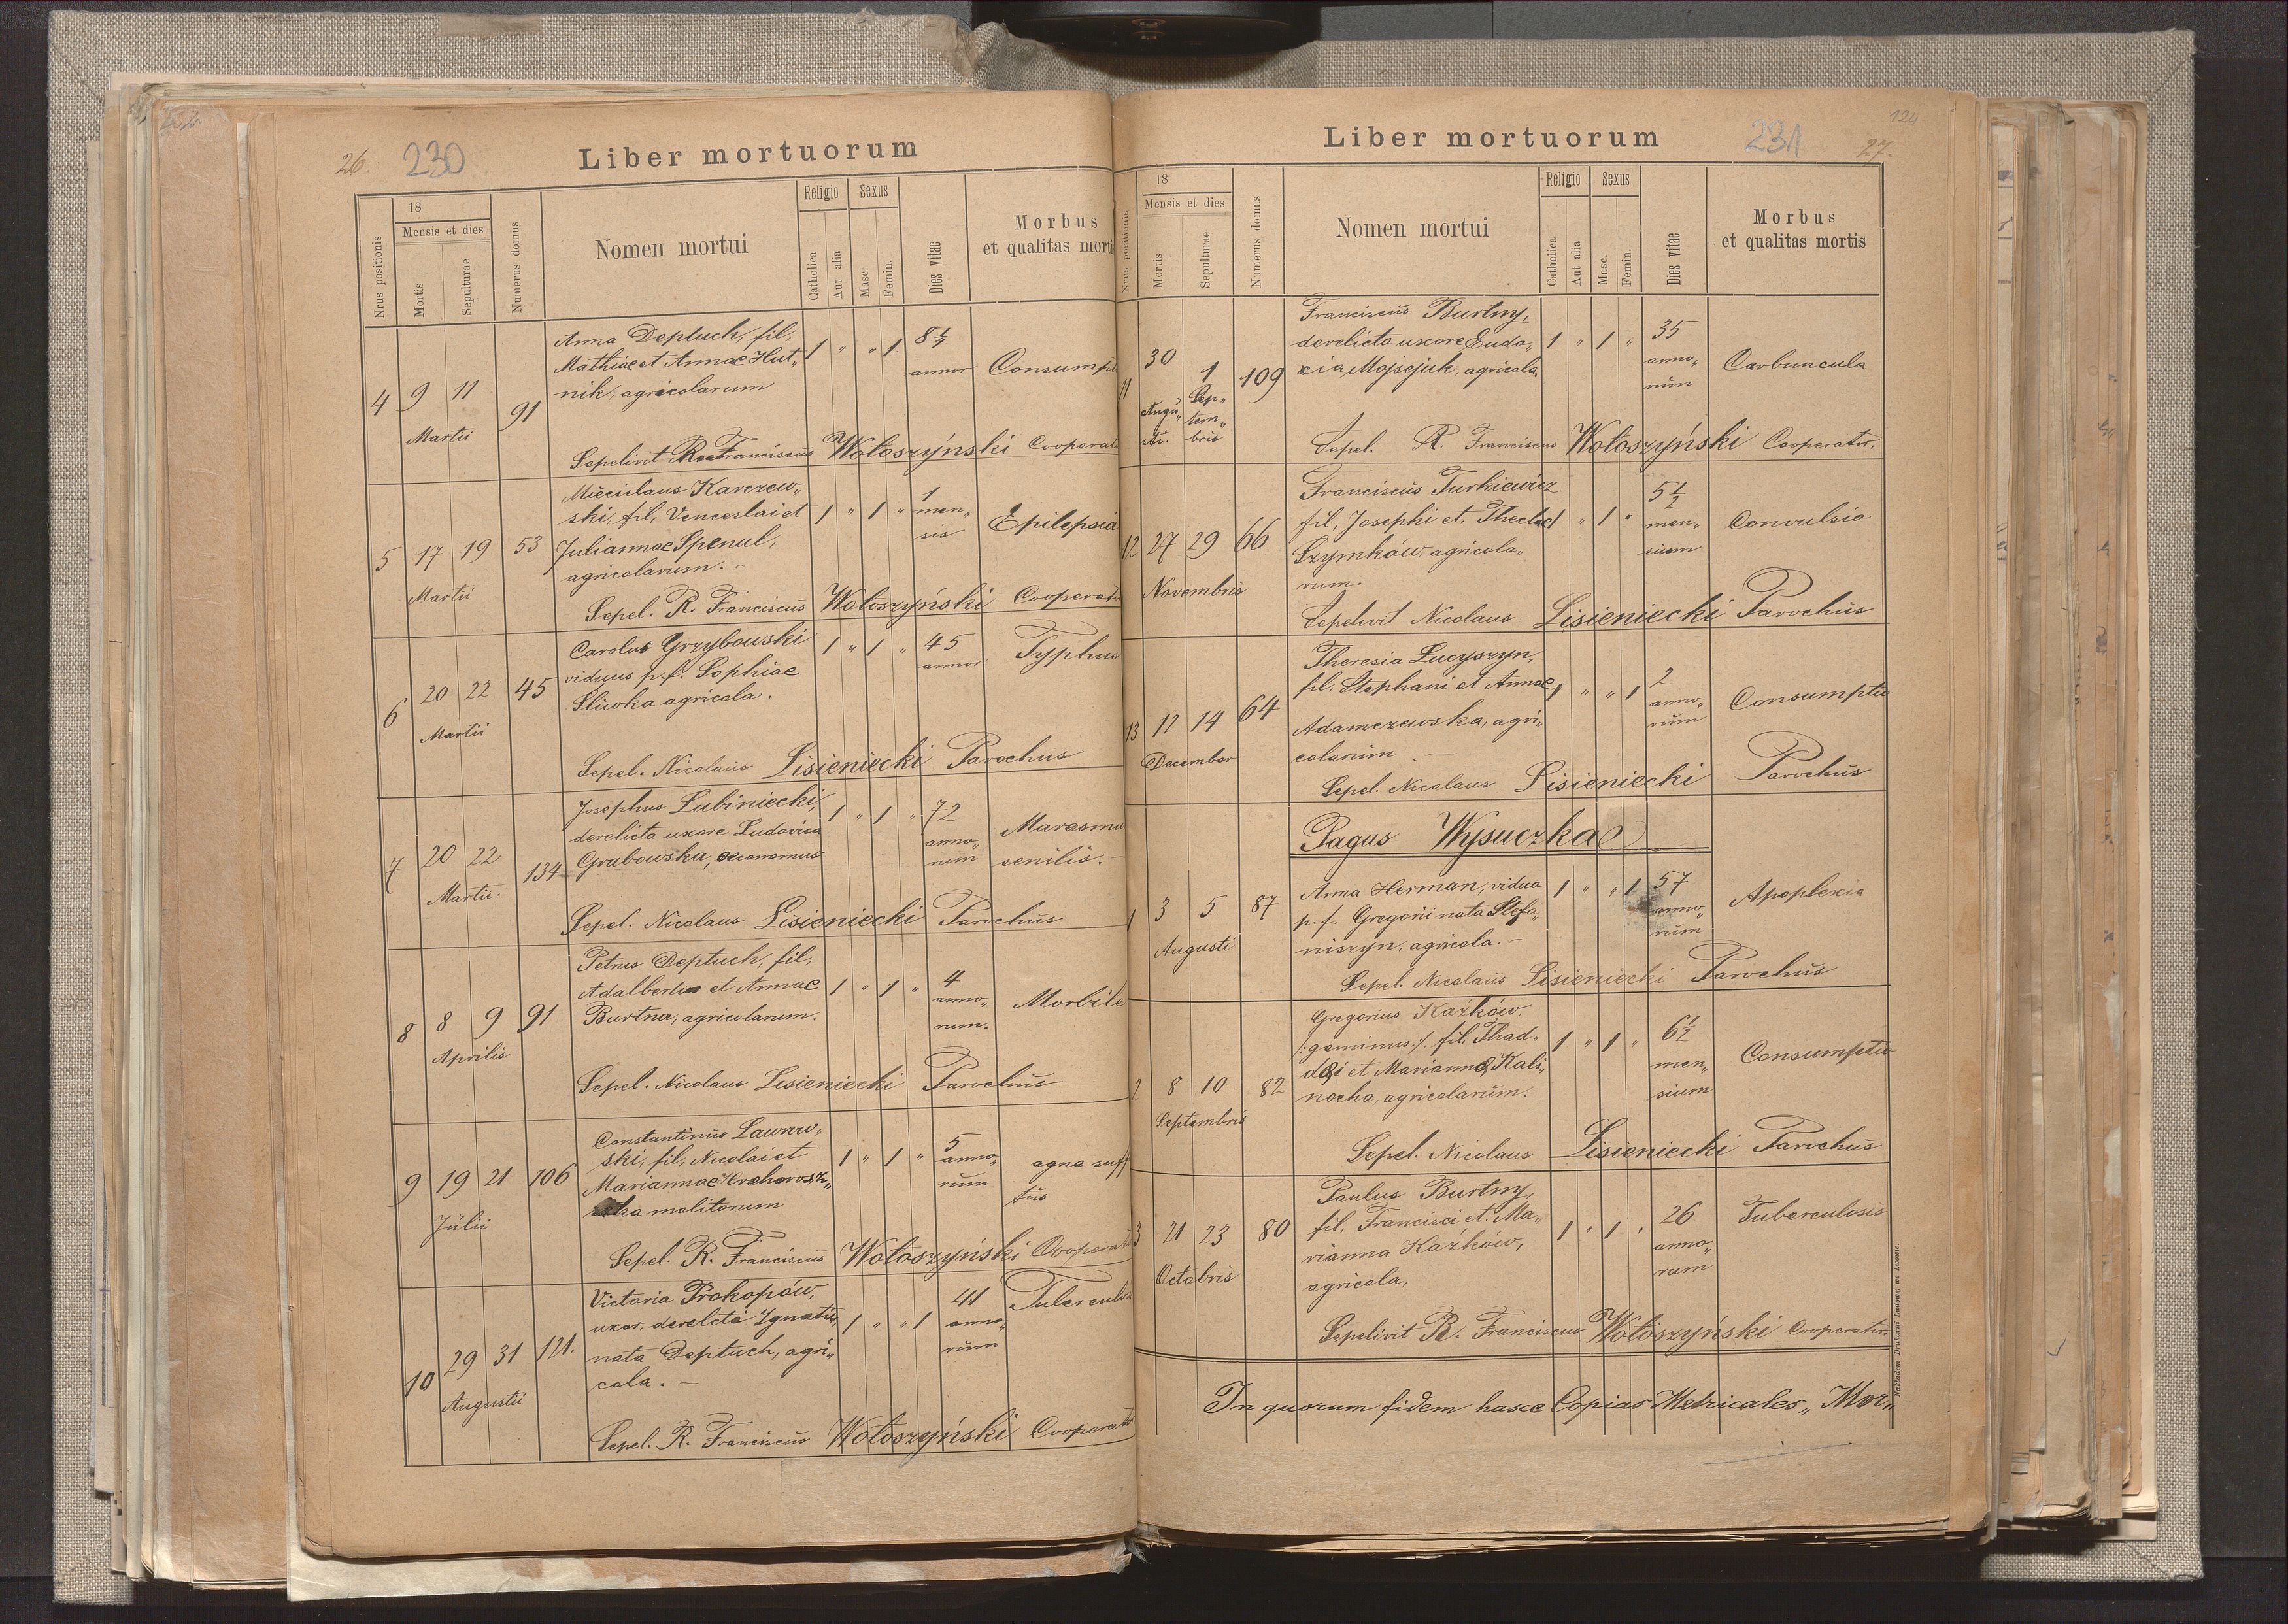 26. 230 Liber mortuorum
Nrus positionis
18
Mensis et dies
Mortis
Sepulturae
Numerus domus
Nomen mortui
Religio
Catholica
Aut alia
Sexus
Masc.
Femin.
Dies vitae
Morbus
et qualitas morti
4 9 11 Martii 91
Anna Deptuch, fil,
Mathiae et Annae Hut„
nik, agricolarum
1 " " 1
annor
Consump
Sepelivit Franciscus Wołoszyński Cooperat
5 17 19 Martii 53
Miecislaus Karczew„
ski, fil, Venceslai et
Juliannae Spenul,
agricolarum. -
1 " 1 "
1
men„
sis
Epilepsia
Sepel. R. Franciscus Wołoszyński Cooperat
6 20 22 Martii 45
Carolus Grzybowski
viduus p. f. Sophiae
Sliwka agricola.
1 " 1 "
45
annor
Typhus
Sepel. Nicolaus Lisieniecki Parochus
7 20 22 Martii. 134
Josephus Lubiniecki,
derelicta uxore Ludovica
Grabowska, oeconomus
1 " 1 "
72
anno„
rum
Marasmu
senilis. -
Sepel. Nicolaus Lisieniecki Parochus
8 8 9 Aprilis 91
Petrus Deptuch, fil,
Adalberti et Annae
Burtna, agricolarum.
1 " 1 "
4
anno„
rum.
Morbile
Sepel. Nicolaus Lisieniecki Parochus
9 19 21 Julii 106
Constantinus Lawrow„
ski, fil, Nicolai et
Mariannae
molitorum
1 " 1 "
5
anno„
rum
agna suff
tus
Sepel. R. Franciscus Wołoszyński Cooperat
10 29 31 Augustii 121.
Victoria Prokopów,
uxor. derelcta Ignatii,
nata Deptuch, agri„
cola. -
1 " " 1
41
anno„
rum
Tuberculo
Sepel. R. Franciscus Wołoszyński Cooperat
Liber mortuorum 231 124
27.
Nrus positionis
18
Mensis et dies
Mortis
Sepulturae
Numerus domus
Nomen mortui
Religio
Catholica
Aut alia
Sexus
Masc.
Femin.
Dies vitae
Morbus
et qualitas mortis
11 30 Augu„ sti. 1 Sep„ tem„ bris 109
Franciscus Burtny,
derelicta uxore Eudo„
cia Mojsejuk, agricola
1 " 1 "
35
anno„
rum
Carbuncula
Sepel. R. Franciscus Wołoszyński Cooperator.
12 27 29 Novembris 66
Franciscus Turkiewicz
fil, Josephi et Theclae
Szymków agricola„
rum.
1 " 1 "
5 1/2
men„
sium
Convulsio
Sepelivit Nicolaus Lisieniecki Parochus
13 12 14 December 64
Theresia Lucyszyn,
fil, Stephani et Annae
Adamczewska, agri„
colarum. -
1 " " 1
2
anno„
rum
Consumptio
Sepel. Nicolaus Lisieniecki Parochus
Pagus Wysuczkae
1 3 5 Augusti 87
Anna Herman, vidua
p. f. Gregorii nata Stefa„
niszyn, agricola. -
1 " " 1
57
anno„
rum
Apoplexia
Sepel. Nicolaus Lisieniecki Parochus
2 8 10 Septembris 82
Gregorius Kaźków.
/:geminus:/, fil, Thad„
daei et Mariannae Kali„
nocha, agricolarum.
1 " 1 "
6 1/2
men„
sium
Consumptio
Sepel. Nicolaus Lisieniecki Parochus
3 21 23 Octobris 80
Paulus Burtny,
fil, Francisci et Ma„
rianna Kaźków,
agricola,
1 " 1 "
26
anno„
rum
Tuberculosis
Sepelivit R. Franciscus Wołoszyński Cooperator.
In quorum fidem hasce Copias Metricales „Mor„
Nakładem Drukarni Ludowej we Lwowie.